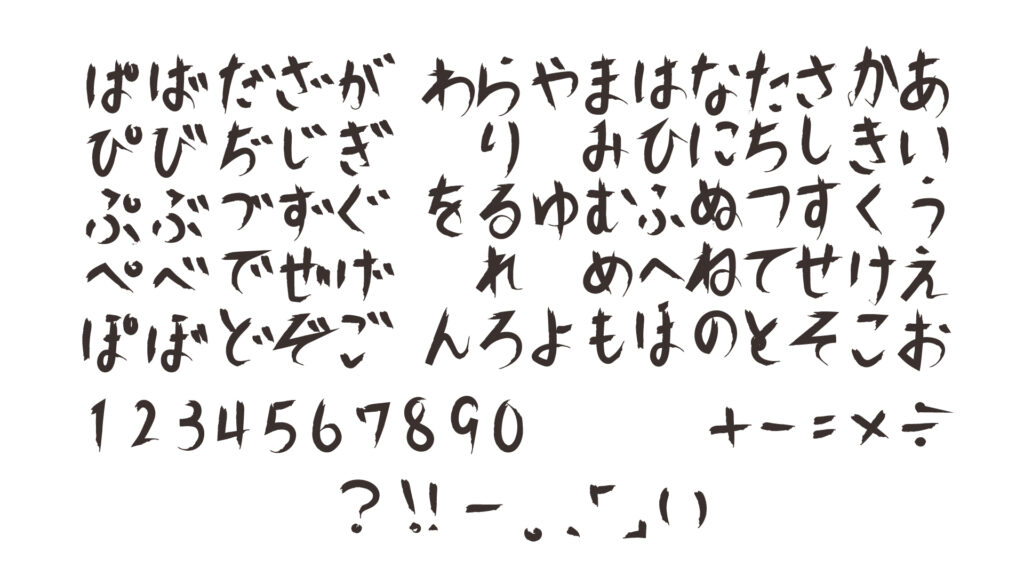 ぱばだざが わらやまはなたさかあ
ぴびぢじぎ り みひにちしきい
ぷぶづずぐ をるゆむふぬつすくぅ
ぺべでぜげ れ めへねてせけえ
ぽぼどぞご んろよもほのとそこお
1234567890 +-=×÷
?!!ー。、「」()